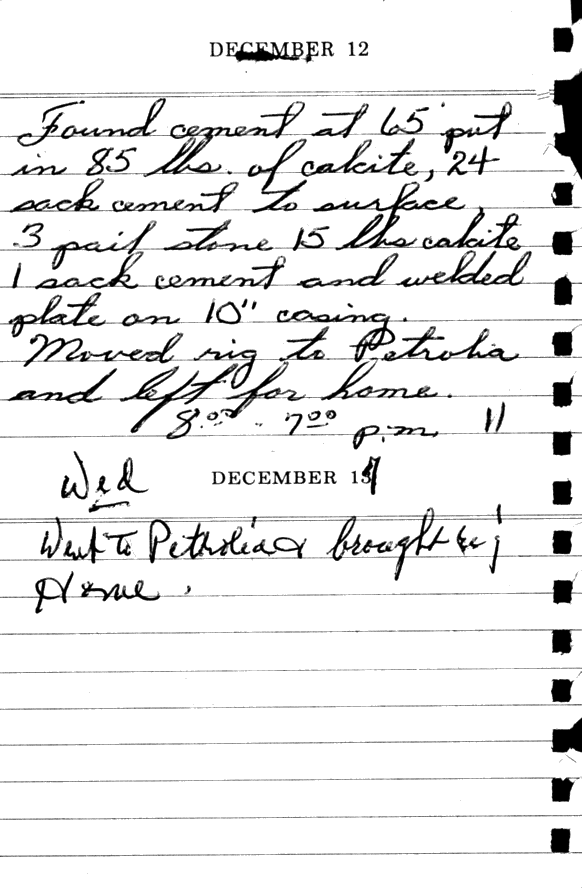 DECEMBER 12
Found cement at 65' put
in 85 lbs. of calcite, 24
sack cement to surface,
3 pail stone 15 lbs calcite
1 sack cement and welded
plate on 10" casing.
Moved rig to Petrolia
and left for home.
8:00 - 7:00 p.m. 11
Wed DECEMBER
Went To Petrolia & brought rig
Home.